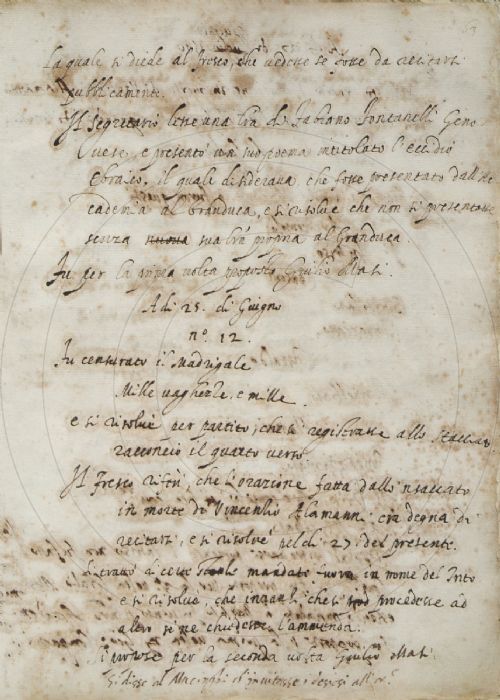 La quale si diede al fresco, che vedesse se fosse da recitarsi
pubblicamente.
Il Segretario lesse una lra di Fabiano Fontanelli Geno
vese, e presentò un suo poema intitolato l'eccidio
Ebraico, il quale desiderava, che fosse presentato dall'Ac
cademia al Granduca, e si risolvé che non si presentasse
senza nuova sua lrã propria al Granduca.
Fu per la prima volta proposto Giulio Mati.
A di 25. di Giugno
nº. 12.
Fu censurato il Madrigale
Mille vaghezze, e mille
e si risolvé per partito, che si registrasse allo Stacciato
racconcio il quarto verso
Il fresco riferì, che l'orazione fatta dallo nsaccato
in morte di Vincenzio Alamanni era degna di
recitarsi, e si risolvé pel di 27. del presente.
Si trattò di certe mandate fuora in nome del
e si risolvé, che innanzi che si procedesse ad
altro se ne chiedesse l'ammenda.
Si propose per la seconda volta Giulio Mati.
Si disse al